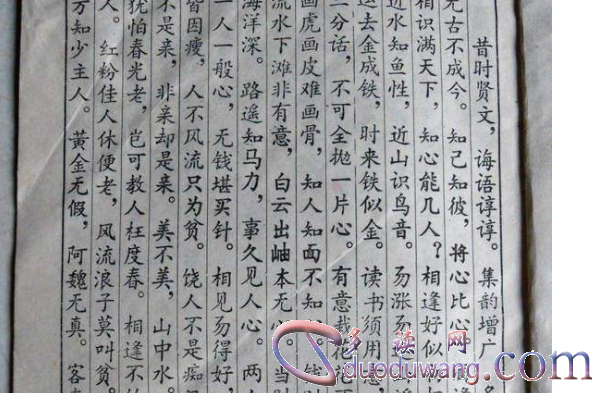 昔时贤文，诲语谆谆。集韵增广，多
无古不成今。知己知彼，将心比心。
相识满天下，知心能几人？相逢好似
近水知鱼性，近山识鸟音。易涨易
运去金成铁，时来铁似金。读书须用意，
三分话，不可全抛一片心。有意栽花花
画虎画皮难画骨，知人知面不知
流水下滩非有意，白云出岫本无心。当时
海洋深。路遥知马力，事久见人心。两人
一人一般心，无钱堪买针。相见易得好，
皆因瘦，人不风流只为贫。饶人不是痴
不是亲，非亲却是亲。美不美，山中水。
犹怕春光老，岂可教人枉度春。相逢不
人。红粉佳人休便老，风流浪子莫叫贫。
方知少主人。黄金无假，阿魏无真。客
多读网
duoduwang.com